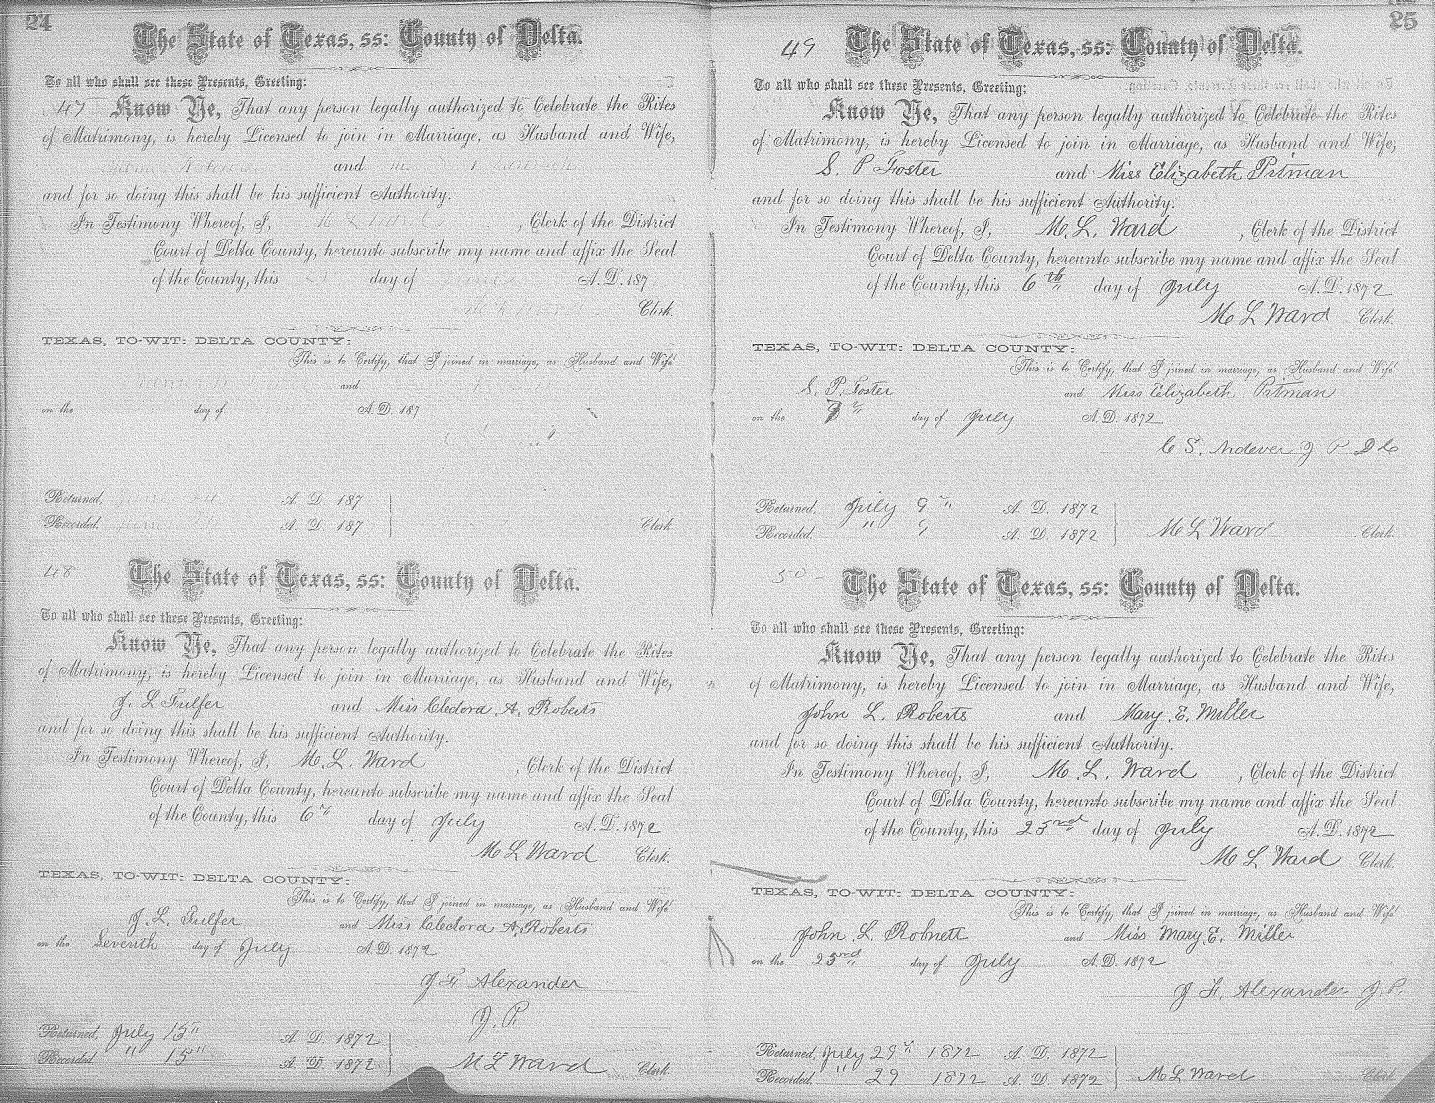 24
The State of Texas, ss: County of Delta.
To all who shall see these Presents, Greeting:
47 Know Ye, That any person legally authorized to Celebrate the Rites
of Matrimony, is hereby Licensed to join in Marriage, as Husband and Wife,
and
and for so doing this shall be his sufficient Authority.
In Testimony Whereof, I, , Clerk of the District
Court of Delta County, hereunto subscribe my name and affix the Seal
of the County, this day of A. D. 187
Clerk.
TEXAS, TO-WIT: DELTA COUNTY:
This is to Certify, that I joined in marriage, as Husband and Wife
and
on the day of A. D. 187
Returned, A. D. 187
Recorded, A. D. 187 Clerk
48 The State of Texas, ss: County of Delta.
To all who shall see these Presents, Greeting:
Know Ye, That any person legally authorized to Celebrate the Rites
of Matrimony, is hereby Licensed to join in Marriage, as Husband and Wife,
J. L. Fulfer and Miss Cledora A. Roberts
and for so doing this shall be his sufficient Authority.
In Testimony Whereof, I, M. L. Ward , Clerk of the District
Court of Delta County, hereunto subscribe my name and affix the Seal
of the County, this 6th day of July A. D. 1872
M L Ward Clerk.
TEXAS, TO-WIT: DELTA COUNTY:
This is to Certify, that I joined in marriage, as Husband and Wife
J. L. Fulfer and Miss Cledora A. Roberts
on the Seventh day of July A. D. 1872
J. F. Alexander
J. P.
Returned, July 15" A. D. 1872
Recorded, " 15" A. D. 1872 M L Ward Clerk
25
49 The State of Texas, ss: County of Delta.
To all who shall see these Presents, Greeting:
Know Ye, That any person legally authorized to Celebrate the Rites
of Matrimony, is hereby Licensed to join in Marriage, as Husband and Wife,
S. P. Foster and Miss Elizabeth Pitman
and for so doing this shall be his sufficient Authority.
In Testimony Whereof, I, M. L. Ward , Clerk of the District
Court of Delta County, hereunto subscribe my name and affix the Seal
of the County, this 6th day of July A. D. 1872
M L Ward Clerk.
TEXAS, TO-WIT: DELTA COUNTY:
This is to Certify, that I joined in marriage, as Husband and Wife
S. P. Foster and Miss Elizabeth Pitman
on the 7th day of July A. D. 1872
C S. Andover J P D C
Returned, July 9th A. D. 1872
Recorded, " 9 A. D. 1872 M L Ward Clerk.
50 - The State of Texas, ss: County of Delta.
To all who shall see these Presents, Greeting:
Know Ye, That any person legally authorized to Celebrate the Rites
of Matrimony, is hereby Licensed to join in Marriage, as Husband and Wife,
John L. Roberts and Mary. E. Miller
and for so doing this shall be his sufficient Authority.
In Testimony Whereof, I, M. L. Ward , Clerk of the District
Court of Delta County, hereunto subscribe my name and affix the Seal
of the County, this 23rd day of July A. D. 1872
M L Ward Clerk.
TEXAS, TO-WIT: DELTA COUNTY:
This is to Certify, that I joined in marriage, as Husband and Wife
John L. Robnett and Miss Mary E. Miller
on the 23rd day of July A. D. 1872
J. F. Alexander J. P.
Returned, July 29th 1872 A. D. 1872
Recorded, " 29 1872 A. D. 1872 M L Ward Clerk